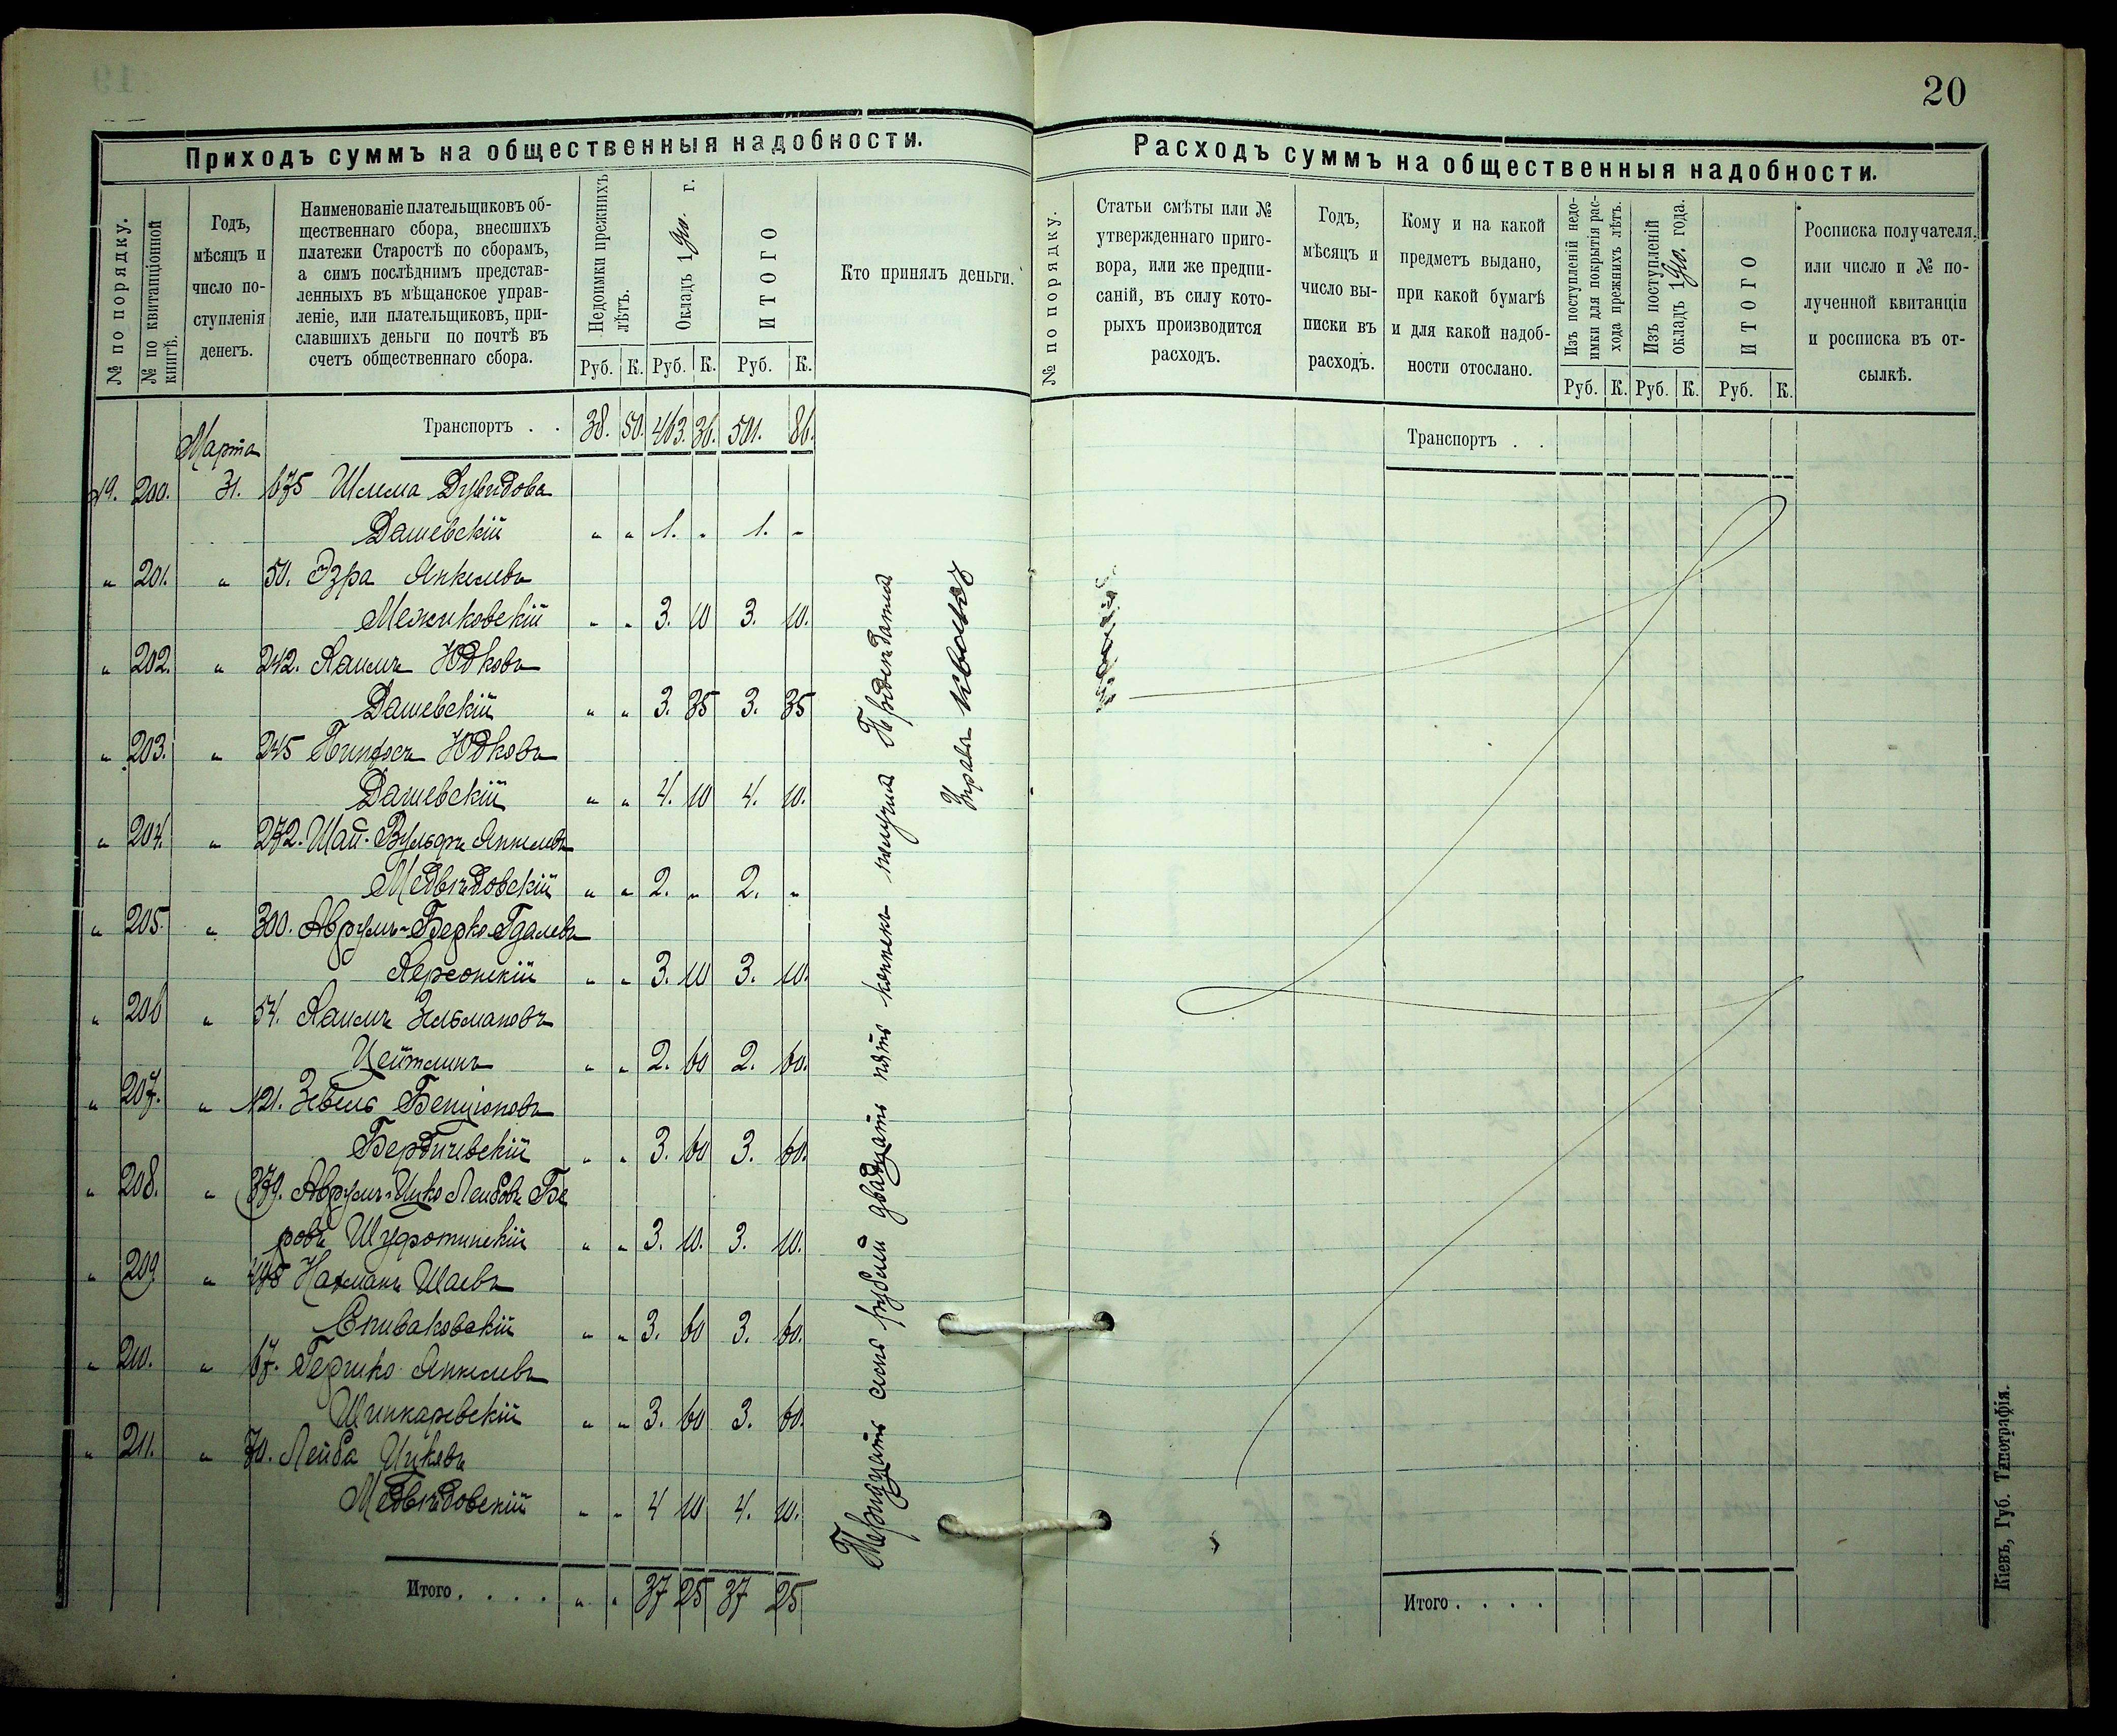 20
Приходъ суммъ на общественныя надобности.
№ по порядку.
№ по квитанціонной книгѣ.
Годъ,
мѣсяцъ и
число по-
ступленія
денегъ.
Наименованіе плательщиковъ об-
щественнаго сбора, внесшихъ
платежи Старостѣ по сборамъ,
а симъ послѣднимъ представ-
ленныхъ въ мѣщанское управ-
леніе, или плательщиковъ, при-
славшихъ деньги по почтѣ въ
счетъ общественнаго сбора.
Недоимки прежнихъ
лѣтъ.
Окладъ 1900. г.
ИТОГО
Руб. К. Руб. К. Руб. К.
Кто принялъ деньги.
Транспортъ . . 38. 50. 463. 36. 501. 86.
Марта
19. 200. 31. 675 Шлема Дувидовъ
Дашевскій " " 1. " 1. "
" 201. " 50. Эзра Янкелевъ
Межиковскій " " 3. 10 3. 10.
" 202. " 242. Хаимъ Юдковъ
Дашевскій " " 3. 35 3. 35
" 203. " 245 Пинхосъ Юдковъ
Дашевскій " " 4. 10 4. 10.
" 204. " 272. Шай-Вульфъ Янкелевъ
Медвѣдовскій " " 2. " 2. "
" 205. " 300. Аврумъ-Берко Гдалевъ
Херсонскій " " 3. 10 3. 10.
" 206 " 54. Хаимъ Зельмановъ
Цейтлинъ " " 2. 60 2. 60.
" 207. " 121. Зевель Бенціоновъ
Бердичевскій " " 3. 60 3. 60.
" 208. " 379. Аврумъ-Ицко Лейбовъ Бе
ровъ Шуфотинскій " " 3. 10. 3. 10.
" 209 " 478 Нахманъ Шаевъ
Спиваковскій " " 3. 60 3. 60.
" 210. " 67. Гершко Янкелевъ
Шинкаревскій " " 3. 60 3. 60.
" 211. " 70. Лейба Ицковъ
Медвѣдовскій " " 4 10 4. 10.
Итого . . . . " " 37 25 37 25
Тридцать семь рублей двадцать пять копѣекъ получилъ
Расходъ суммъ на общественныя надобности.
№ по порядку.
Статьи смѣты или №
утвержденнаго приго-
вора, или же предпи-
саній, въ силу кото-
рыхъ производится
расходъ.
Годъ,
мѣсяцъ и
число вы-
писки въ
расходъ.
Кому и на какой
предметъ выдано,
при какой бумагѣ
и для какой надоб-
ности отослано.
Изъ поступленій недо-
имки для покрытія рас-
хода прежнихъ лѣтъ.
Изъ поступленій
окладъ 1900. года.
ИТОГО
Руб. К. Руб. К. Руб. К.
Росписка получателя,
или число и № по-
лученной квитанціи
и росписка въ от-
сылкѣ.
Транспортъ . .
Итого . . . .
Кіевъ, Губ. Типографія.